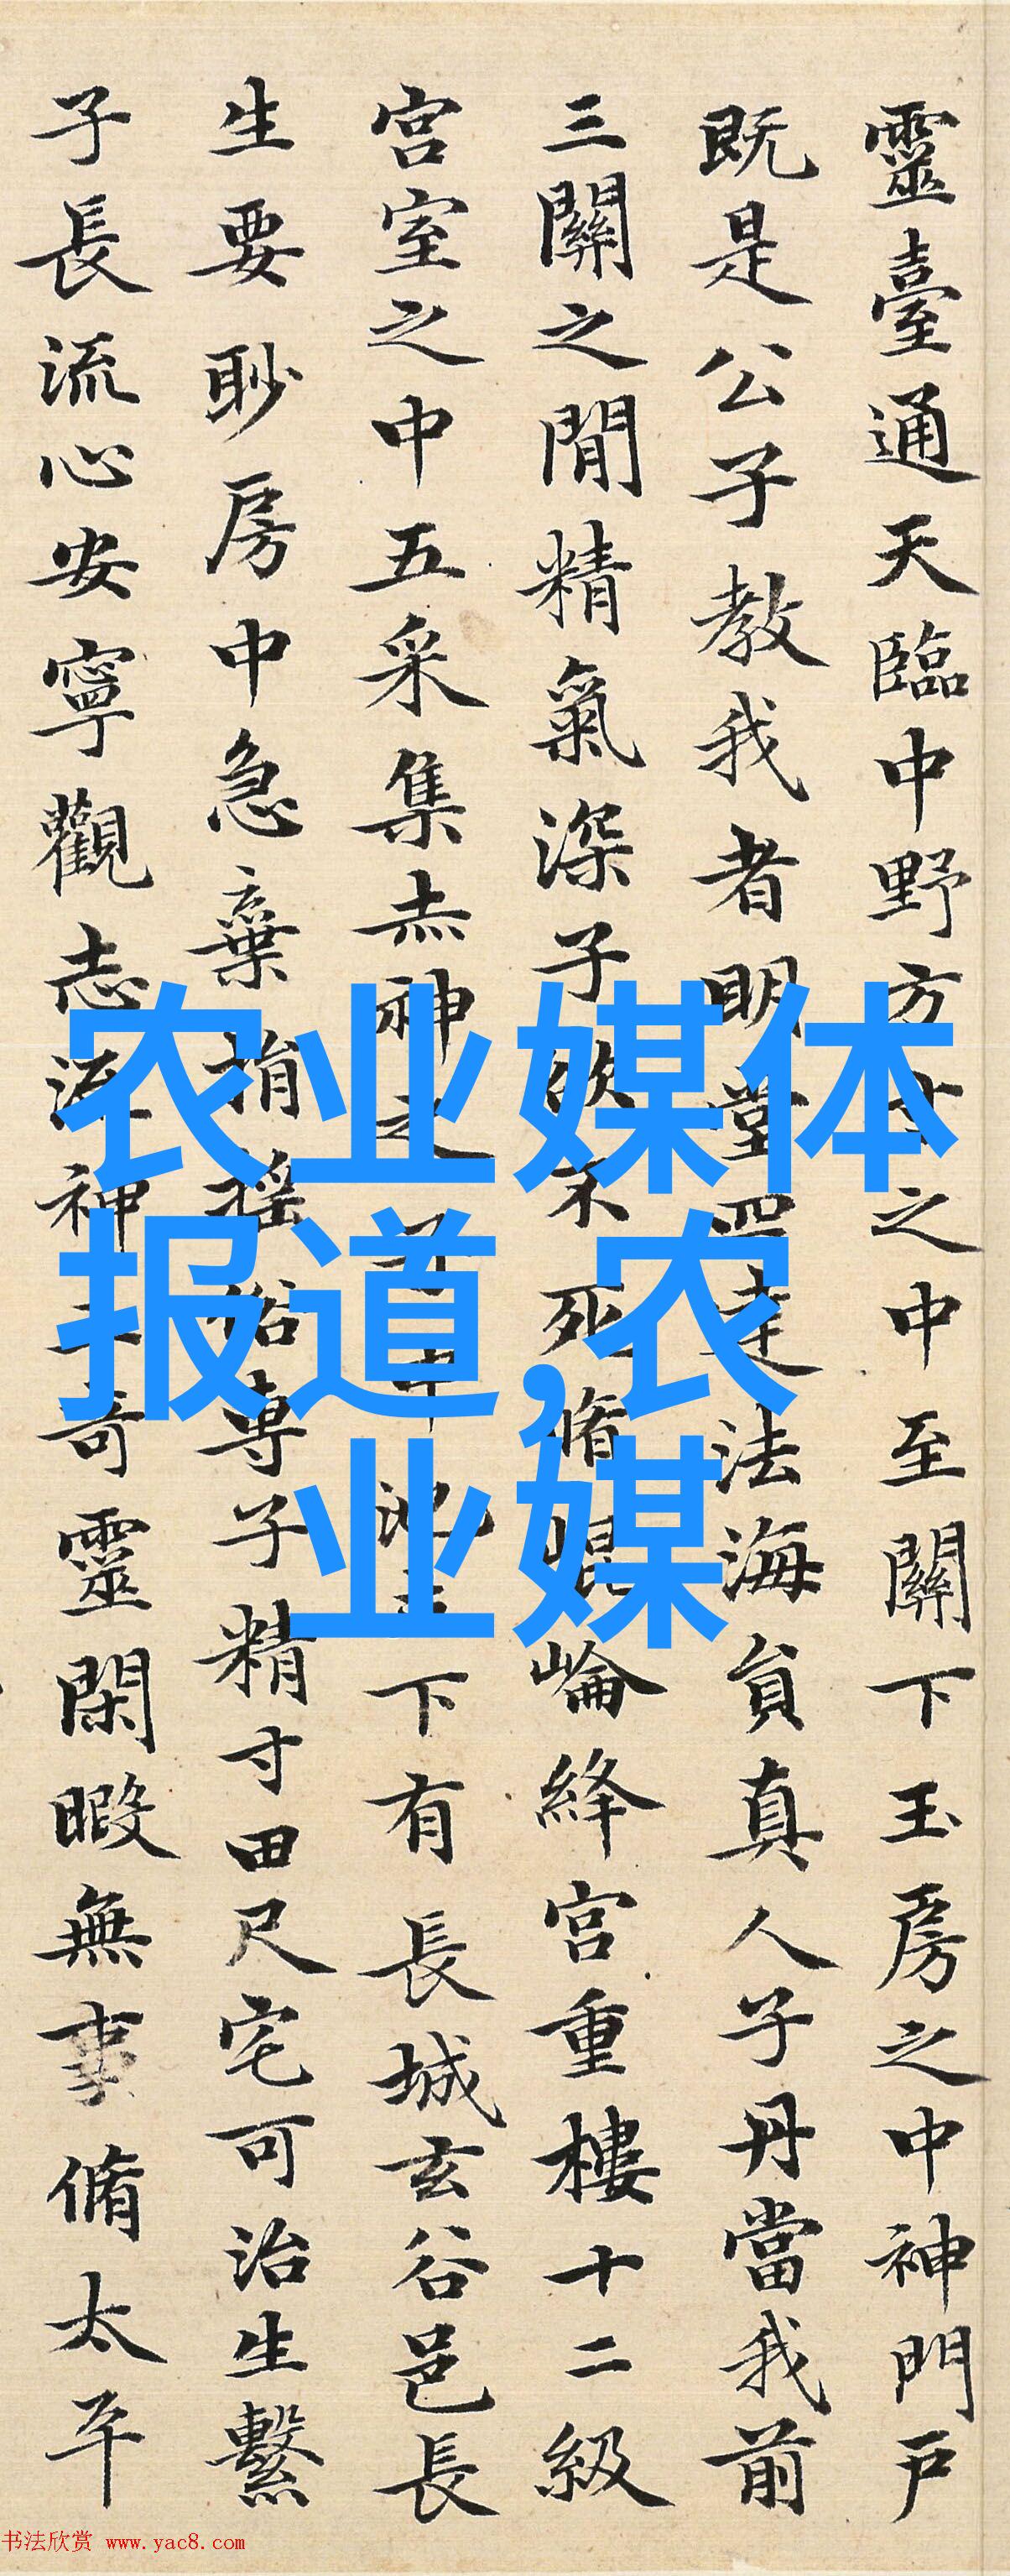 靈臺通天臨中野方寸之中至關下玉房之中神門戶
既是公子教我者明堂四達法海員真人子丹當我前
三關之間精氣深子欲不死脩崐崘絳宮重樓十二級
宮室之中五采集赤神之子中池立下有長城玄谷邑長
生要眇房中急棄捐搖俗專子精寸田尺宅可治生繫
子長流心安寧觀志流神三奇靈閑暇無事脩太平
农业媒体
报道,农
业媒
书法欣赏 www.yac8.com